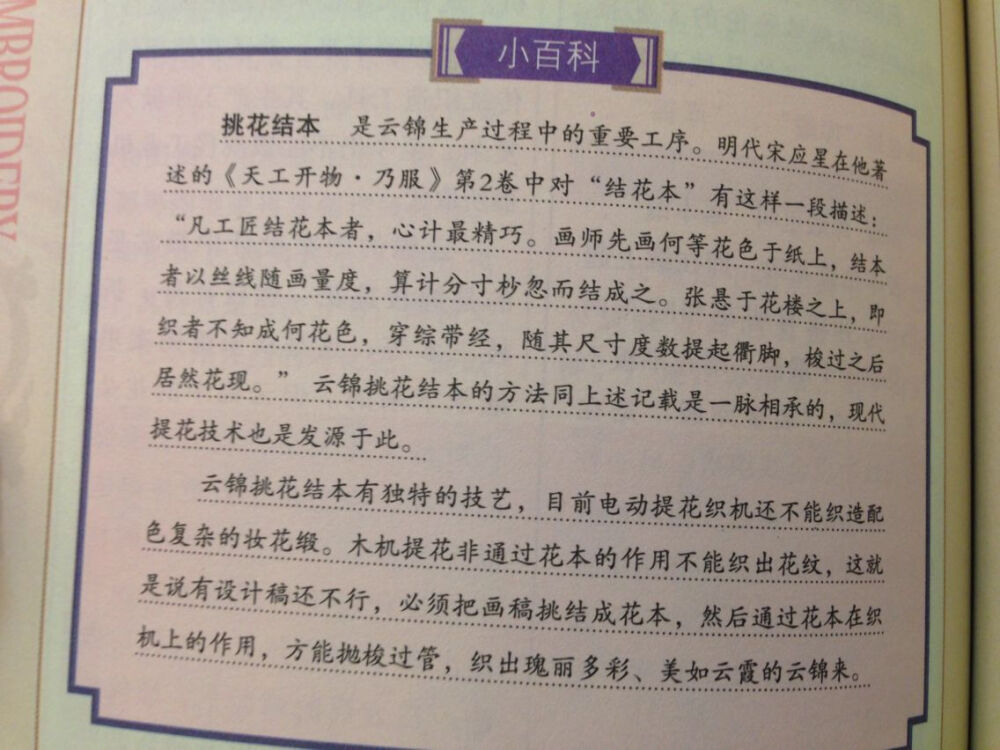 小百科
挑花结本　是云锦生产过程中的重要工序。明代宋应星在他著
述的《天工开物·乃服》第2卷中对“结花本”有这样一段描述：
“凡工匠结花本者，心计最精巧。画师先画何等花色于纸上，结本
者以丝线随画量度，算计分寸杪忽而结成之。张悬于花楼之上，即
织者不知成何花色，穿综带经，随其尺寸度数提起衢脚，梭过之后
居然花现。”　云锦挑花结本的方法同上述记载是一脉相承的，现代
提花技术也是发源于此。
云锦挑花结本有独特的技艺，目前电动提花织机还不能织造配
色复杂的妆花缎。木机提花非通过花本的作用不能织出花纹，这就
是说有设计稿还不行，必须把画稿挑结成花本，然后通过花本在织
机上的作用，方能抛梭过管，织出瑰丽多彩、美如云霞的云锦来。
MBROIDERY